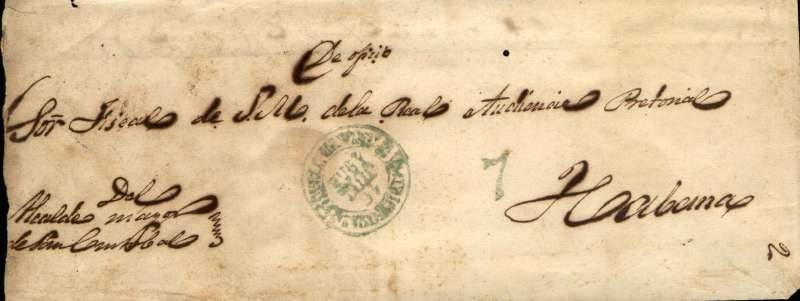 De oficio
Sor Fiscal de S.M. de la Real Audiencia Pretorial
Habana
7
Del
Alcalde mayor
de San Cristobal